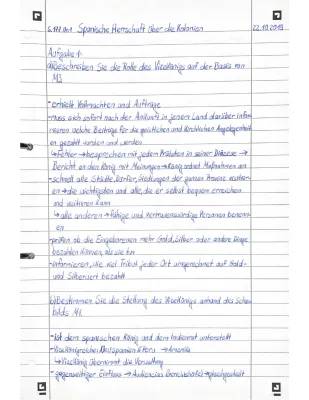 S.177 Nr.1 Spanische Herrschaft über die Kolonien 22.10.2019
Aufgabe 1:
a) Beschreiben Sie die Rolle des Vizekönigs auf der Basis von
M3
- erhielt Vollmachten und Aufträge
- muss sich sofort nach der Ankunft in jenem Land darüber infor-
mieren welche Beiträge für die geistlichen und kirchlichen Angelegenheit
en gezahlt wurden und werden
↳ Fehler → besprechen mit jedem Prälaten in seiner Diözese →
Bericht an den König mit Meinungen → König ordnet Maßnahmen an
- schnell alle Städte, Dörfer, Siedlungen der ganzen Provinz
en → die wichtigsten und alle, die er selbst bequem erreichen
und
↳ alle anderen → fähige und vertrauenswürdige Personen
en
- prüfen ob die Eingeborenen mehr Gold, Silber oder andere Dinge
bezahlen können, als sie tun
- informieren, wie viel Tribut jeder Ort umgerechnet auf Gold-
und Silberwert bezahlt
b) Bestimmen Sie die Stellung des Vizekönigs anhand des Schau
bilds M1.
- Ist dem spanischen König und dem Indienrat unterstellt
- Vizekönigreiche: Neuspanien &
↳ Vizekönig übernimmt die Verwaltung
- gegenseitiger Einfluss → Audiencias